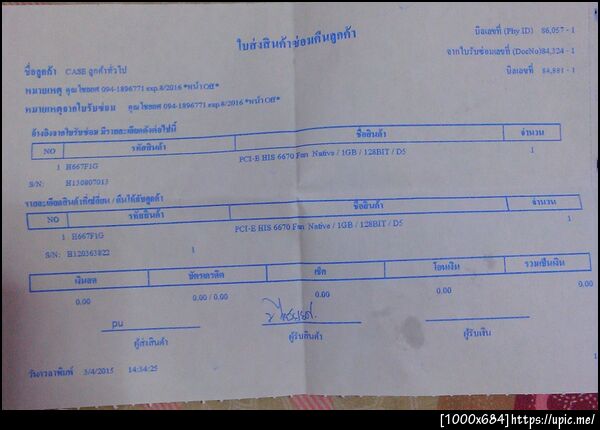 ใบส่งสินค้าซ่อมคืนลูกค้า
บิลเลขที่ (Phy ID) 86,057 - 1
จากใบรับซ่อมเลขที่ (DocNo)84,324 - 1
บิลเลขที่ 84,881 - 1
ชื่อลูกค้า CASE ลูกค้าทั่วไป
หมายเหตุ คุณ ไชยยศ 094-1896771 exp.8/2016 *หน้า Off*
หมายเหตุจากใบรับซ่อม คุณ ไชยยศ 094-1896771 exp.8/2016 *หน้า Off*
อ้างอิงจากใบรับซ่อม มีรายละเอียดดังต่อไปนี้
NO รหัสสินค้า ชื่อสินค้า จำนวน
1 H667F1G PCI-E HIS 6670 Fan Native / 1GB / 128BIT / D5 1
S/N: H130807013
รายละเอียดสินค้าที่เปลี่ยน / คืนให้กับลูกค้า
NO รหัสสินค้า ชื่อสินค้า จำนวน
1 H667F1G PCI-E HIS 6670 Fan Native / 1GB / 128BIT / D5 1
S/N: H120363822 1
เงินสด บัตรเครดิต เช็ค โอนเงิน รวมเป็นเงิน
0.00 0.00 / 0.00 0.00 0.00 0.00
pu ไชยยศ
ผู้ส่งสินค้า ผู้รับสินค้า ผู้รับเงิน
วันเวลาพิมพ์ 3/4/2015 14:34:25
[1000x684]https://upic.me/